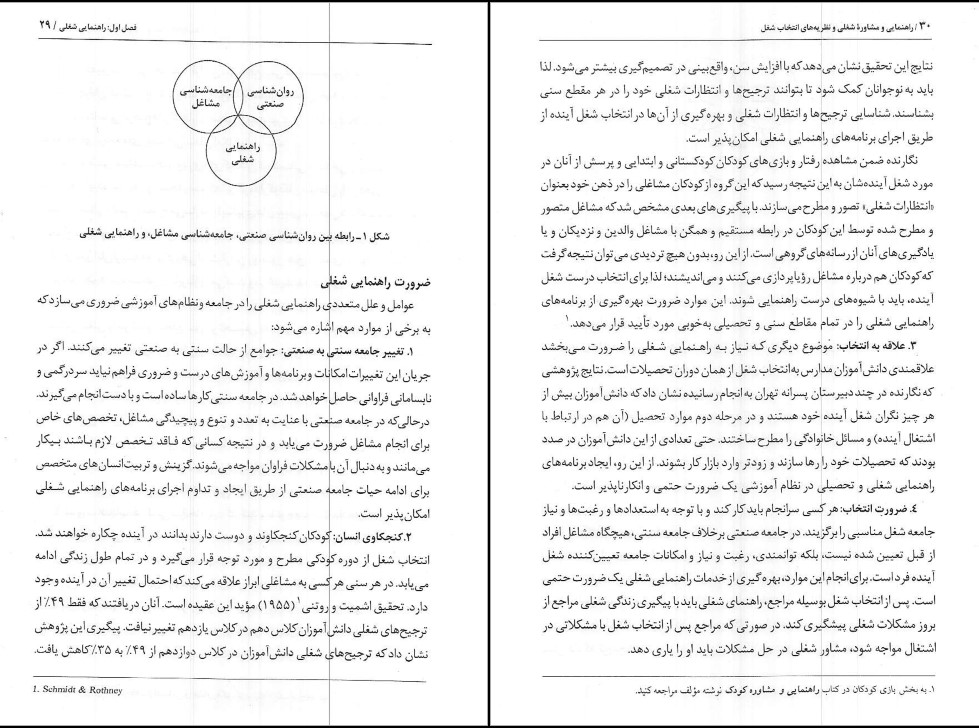 فصل اول: راهنمایی شغلی / ۲۹
روان‌شناسی
صنعتی
جامعه‌شناسی
مشاغل
راهنمایی
شغلی
شکل ۱ ـ رابطه بین روان‌شناسی صنعتی، جامعه‌شناسی مشاغل، و راهنمایی شغلی
ضرورت راهنمایی شغلی
عوامل و علل متعددی راهنمایی شغلی را در جامعه و نظام‌های آموزشی ضروری می‌سازد که
به برخی از موارد مهم اشاره می‌شود:
۱. تغییر جامعه سنتی به صنعتی: جوامع از حالت سنتی به صنعتی تغییر می‌کنند. اگر در
جریان این تغییرات امکانات و برنامه‌ها و آموزش‌های درست و ضروری فراهم نیاید سردرگمی و
نابسامانی فراوانی حاصل خواهد شد. در جامعه سنتی کارها ساده است و با دست انجام می‌گیرند.
درحالی‌که در جامعه صنعتی با عنایت به تعدد و تنوع و پیچیدگی مشاغل، تخصص‌های خاص
برای انجام مشاغل ضرورت می‌یابد و در نتیجه کسانی که فاقد تخصص لازم باشند بیکار
می‌مانند و به دنبال آن با مشکلات فراوان مواجه می‌شوند. گزینش و تربیت انسان‌های متخصص
برای ادامه حیات جامعه صنعتی از طریق ایجاد و تداوم اجرای برنامه‌های راهنمایی شغلی
امکان‌پذیر است.
۲. کنجکاوی انسان: کودکان کنجکاوند و دوست دارند بدانند در آینده چکاره خواهند شد.
انتخاب شغل از دوره کودکی مطرح و مورد توجه قرار می‌گیرد و در تمام طول زندگی ادامه
می‌یابد. در هر سنی هر کسی به مشاغلی ابراز علاقه می‌کند که احتمال تغییر آن در آینده وجود
دارد. تحقیق اشمیت و روتنی۱ (۱۹۵۵) مؤید این عقیده است. آنان دریافتند که فقط ۴۹٪ از
ترجیح‌های شغلی دانش‌آموزان کلاس دهم در کلاس یازدهم تغییر نیافت. پیگیری این پژوهش
نشان داد که ترجیح‌های شغلی دانش‌آموزان در کلاس دوازدهم از ۴۹٪ به ۳۵٪ کاهش یافت.
1. Schmidt & Rothney
۳۰ / راهنمایی و مشاورهٔ شغلی و نظریه‌های انتخاب شغل
نتایج این تحقیق نشان می‌دهد که با افزایش سن، واقع‌بینی در تصمیم‌گیری بیشتر می‌شود. لذا
باید به نوجوانان کمک شود تا بتوانند ترجیح‌ها و انتظارات شغلی خود را در هر مقطع سنی
بشناسند. شناسایی ترجیح‌ها و انتظارات شغلی و بهره‌گیری از آن‌ها در انتخاب شغل آینده از
طریق اجرای برنامه‌های راهنمایی شغلی امکان‌پذیر است.
نگارنده ضمن مشاهده رفتار و بازی‌های کودکان کودکستانی و ابتدایی و پرسش از آنان در
مورد شغل آینده‌شان به این نتیجه رسید که این گروه از کودکان مشاغلی را در ذهن خود بعنوان
«انتظارات شغلی» تصور و مطرح می‌سازند. با پیگیری‌های بعدی مشخص شد که مشاغل متصور
و مطرح شده توسط این کودکان در رابطه مستقیم و همگن با مشاغل والدین و نزدیکان و یا
یادگیری‌های آنان از رسانه‌های گروهی است. از این رو، بدون هیچ تردیدی می‌توان نتیجه گرفت
که کودکان هم درباره مشاغل رؤیاپردازی می‌کنند و می‌اندیشند؛ لذا برای انتخاب درست شغل
آینده، باید با شیوه‌های درست راهنمایی شوند. این موارد ضرورت بهره‌گیری از برنامه‌های
راهنمایی شغلی را در تمام مقاطع سنی و تحصیلی به‌خوبی مورد تأیید قرار می‌دهد.۱
۳. علاقه به انتخاب: موضوع دیگری که نیاز به راهنمایی شغلی را ضرورت می‌بخشد
علاقمندی دانش‌آموزان مدارس به انتخاب شغل از همان دوران تحصیلات است. نتایج پژوهشی
که نگارنده در چند دبیرستان پسرانه تهران به انجام رسانیده نشان داد که دانش‌آموزان بیش از
هر چیز نگران شغل آینده خود هستند و در مرحله دوم موارد تحصیل (آن هم در ارتباط با
اشتغال آینده) و مسائل خانوادگی را مطرح ساختند. حتی تعدادی از این دانش‌آموزان در صدد
بودند که تحصیلات خود را رها سازند و زودتر وارد بازار کار بشوند. از این رو، ایجاد برنامه‌های
راهنمایی شغلی و تحصیلی در نظام آموزشی یک ضرورت حتمی و انکارناپذیر است.
۴. ضرورت انتخاب: هر کسی سرانجام باید کار کند و با توجه به استعدادها و رغبت‌ها و نیاز
جامعه شغل مناسبی را برگزیند. در جامعه صنعتی برخلاف جامعه سنتی، هیچگاه مشاغل افراد
از قبل تعیین شده نیست، بلکه توانمندی، رغبت و نیاز و امکانات جامعه تعیین‌کننده شغل
آینده فرد است. برای انجام این موارد، بهره‌گیری از خدمات راهنمایی شغلی یک ضرورت حتمی
است. پس از انتخاب شغل بوسیله مراجع، راهنمای شغلی باید با پیگیری زندگی شغلی مراجع از
بروز مشکلات شغلی پیشگیری کند. در صورتی که مراجع پس از انتخاب شغل با مشکلاتی در
اشتغال مواجه شود، مشاور شغلی در حل مشکلات باید او را یاری دهد.
۱. به بخش بازی کودکان در کتاب راهنمایی و مشاوره کودک نوشته مؤلف مراجعه کنید.